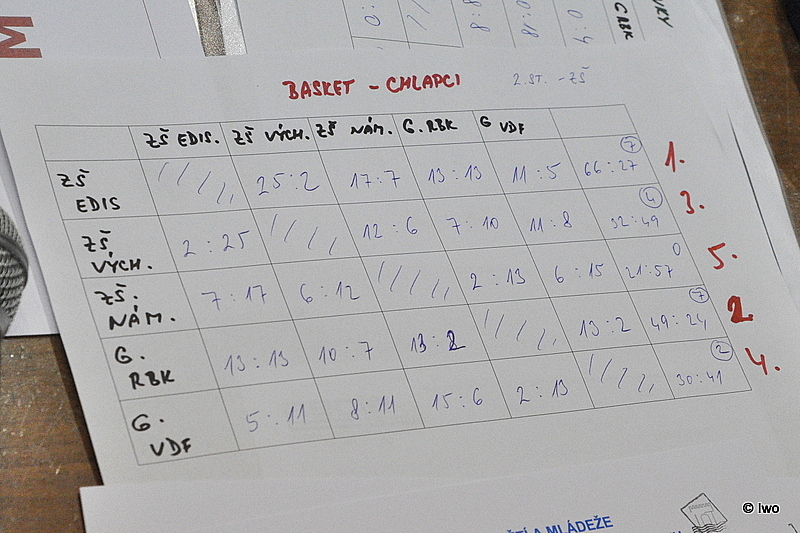 M
0:
8:8
0:18
0:4
G RBK
BASKET - CHLAPCI 2.ST. - ZŠ
ZŠ EDIS. ZŠ VÝCH. ZŠ NÁM. G. RBK G VDF
ZŠ EDIS 25:2 17:7 13:13 11:5 66:27 7 1.
ZŠ VÝCH. 2:25 12:6 7:10 11:8 32:49 4 3.
ZŠ. NÁM. 7:17 6:12 2:13 6:15 21:57 0 5.
G. RBK 13:13 10:7 13:2 13:2 49:24 7 2.
G. VDF 5:11 8:11 15:6 2:13 30:41 2 4.
TÍ A MLÁDEŽE
© Iwo